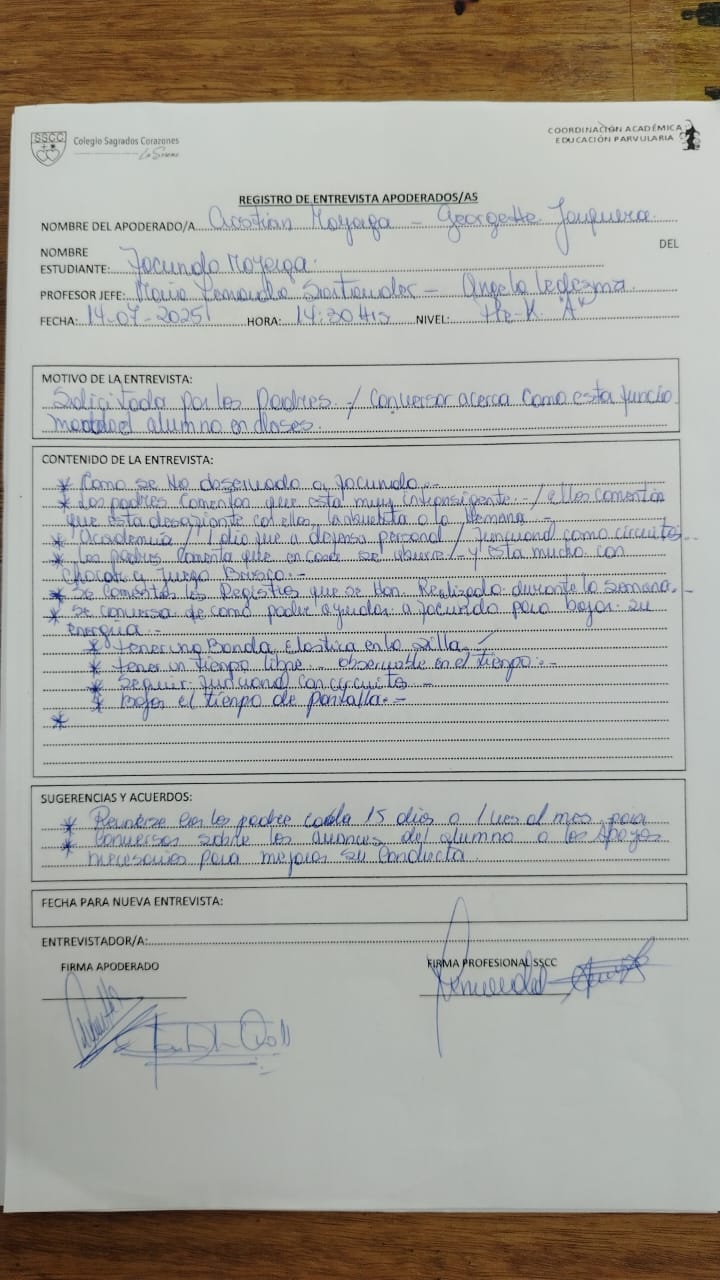 SSCC
Colegio Sagrados Corazones
La Serena
COORDINACIÓN ACADÉMICA
EDUCACIÓN PARVULARIA
REGISTRO DE ENTREVISTA APODERADOS/AS
NOMBRE DEL APODERADO/A Cristian Moyaga - Georgette Jorquera.
NOMBRE DEL
ESTUDIANTE: Facundo Moyaga.
PROFESOR JEFE: Maria Fernanda Santander - Angela Ledezma.
FECHA: 14-07-2025 HORA: 14:30 Hrs NIVEL: Pre-K "A"
MOTIVO DE LA ENTREVISTA:
Solicitada por los Padres. / Conversar acerca como esta funcio
alumno en clases.
CONTENIDO DE LA ENTREVISTA:
* Como se ha observado a Facundo.-
* Los padres comentan que esta muy intransigente.- / ellos comentan
que esta desafiante con ellos, la abuelita o la Nana.-
* Academia / 1 día que a defensa personal / funcional como circuitos.
* Los padres comenta que en casa se aburre / y esta mucho con
chocar y Juego Brusco.-
* Se comentan los Registros que se Han Realizado durante la semana.-
* Se conversa de como poder ayudar a Facundo para bajar su
energía.-
* tener una Banda Elastica en la silla. /
* tener un tiempo libre - observable en el tiempo.-
* Seguir funcional con circuito -
* bajar el tiempo de pantalla.-
*
SUGERENCIAS Y ACUERDOS:
* Reunirse con los padre cada 15 días o 1 ves al mes para
* Conversar sobre los avances del alumno o los Apoyos
necesarios para mejorar su conducta.
FECHA PARA NUEVA ENTREVISTA:
ENTREVISTADOR/A:
FIRMA APODERADO
FIRMA PROFESIONAL SSCC